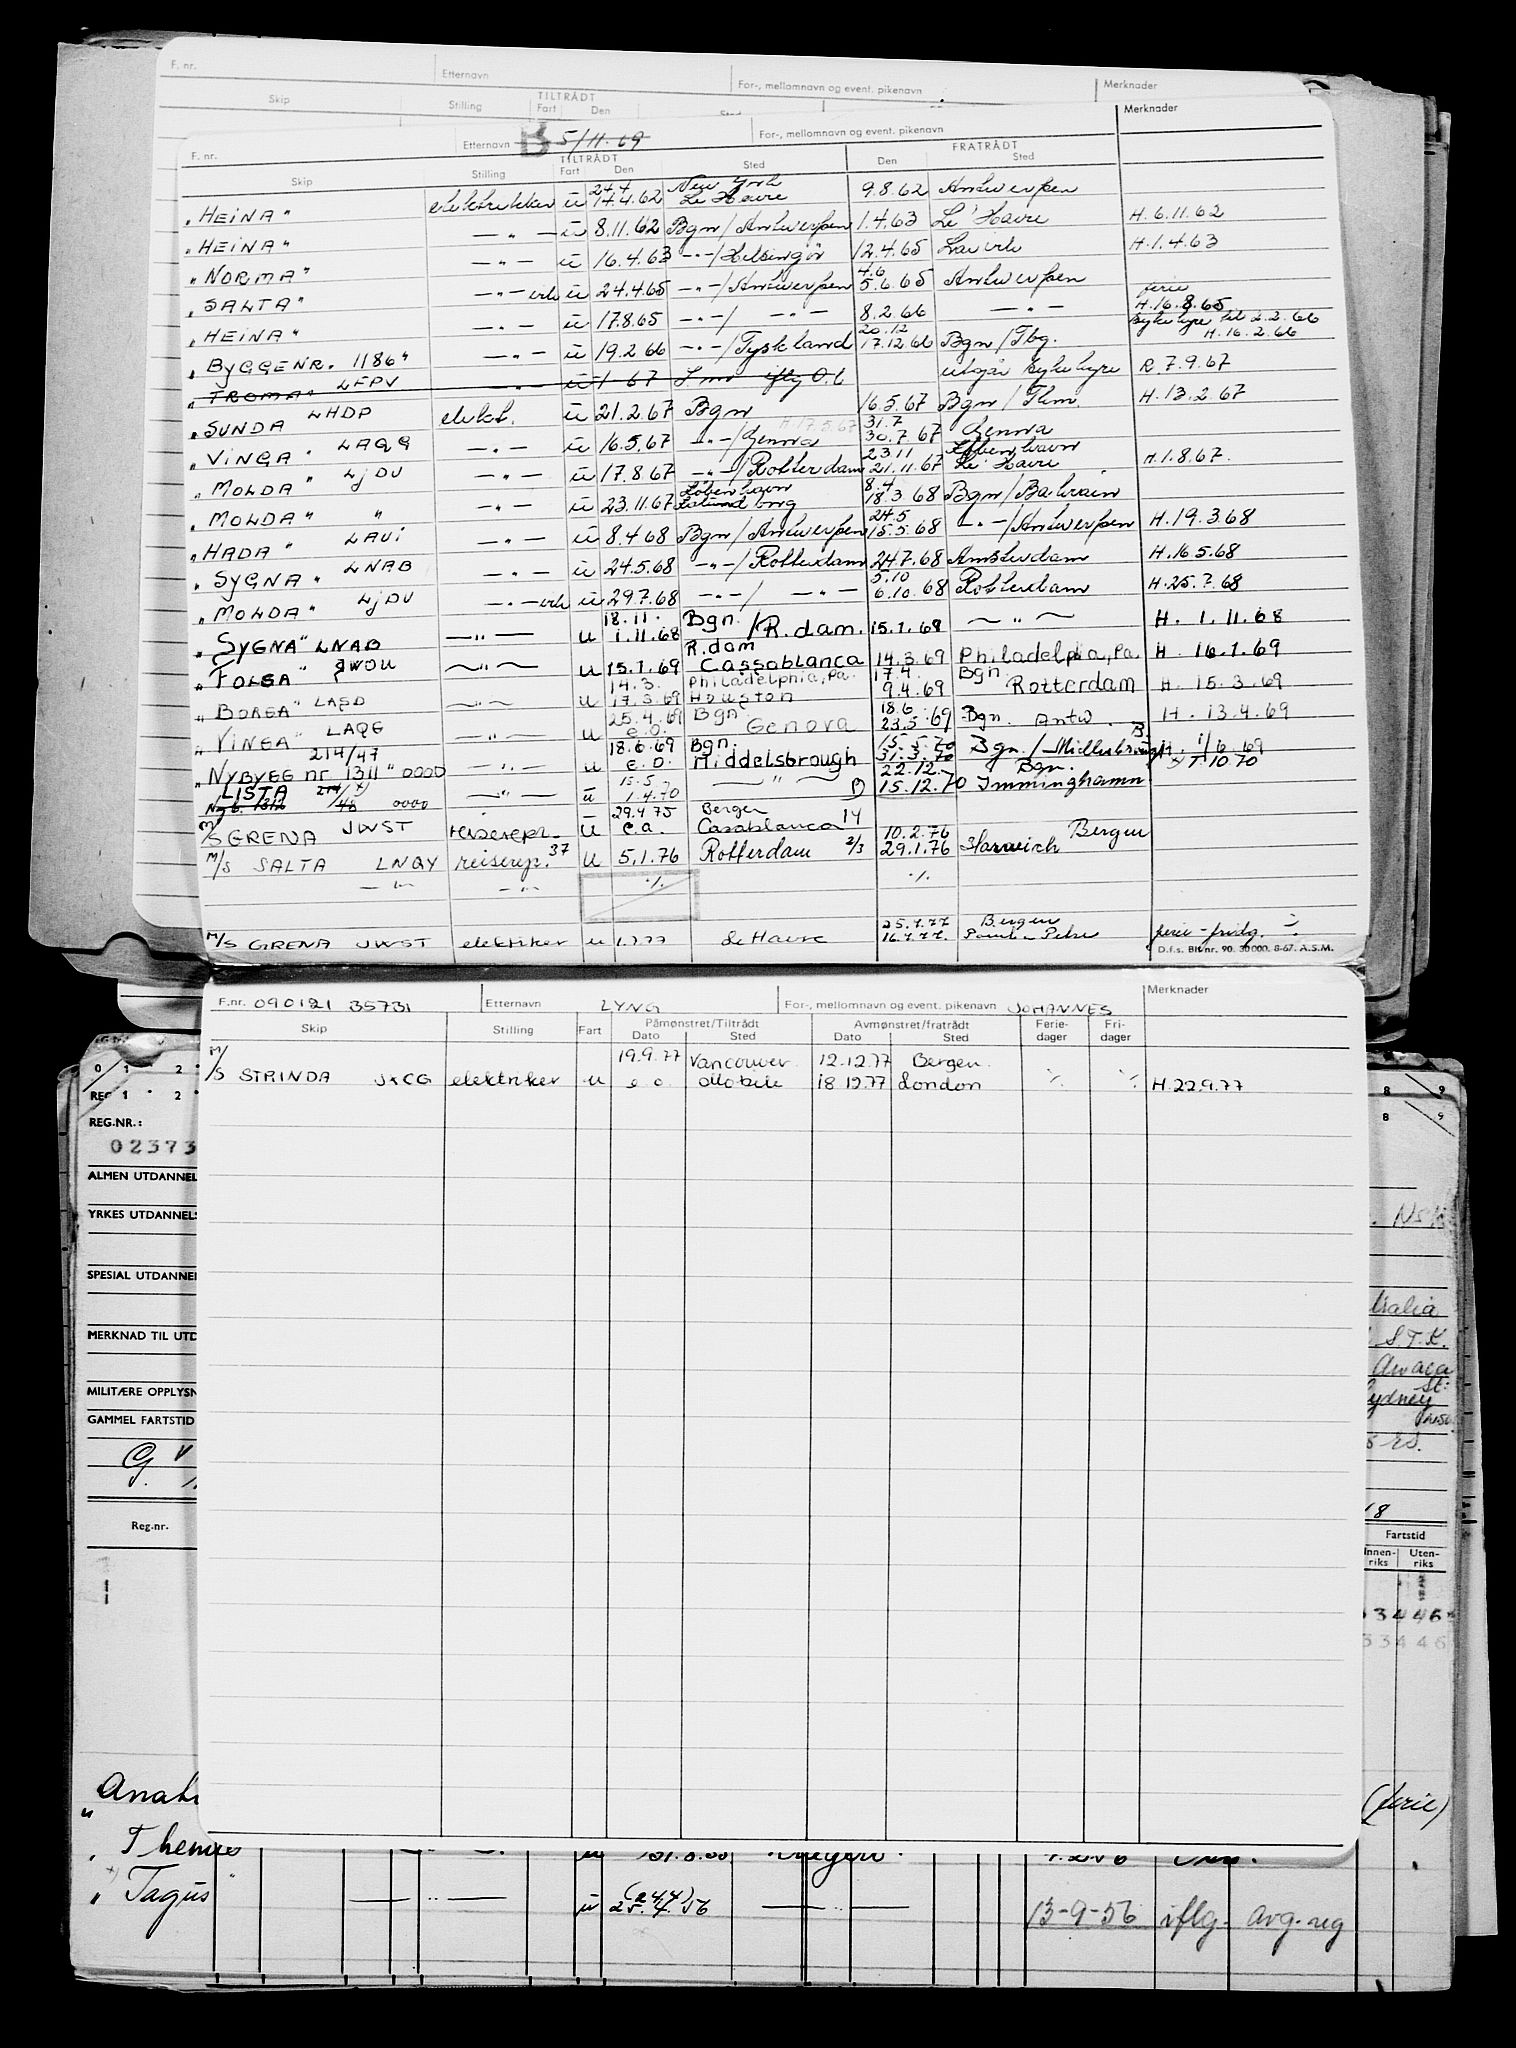 F. nr. Etternavn For-, mellomnavn og event. pikenavn Merknader
Skip Stilling TILTRÅDT Fart Den
F. nr. Etternavn B 5/11.69 For-, mellomnavn og event. pikenavn Merknader
TILTRÅDT FRATRÅDT
Skip Stilling Fart Den Sted Den Sted
24.4 New York
"HEINA" elektrikker u 14.4.62 Le Havre 9.8.62 Antwerpen
"HEINA" — " — u 8.11.62 Bgn/Antwerpen 1.4.63 Le Havre H. 6.11.62
"NORMA" — " — u 16.4.63 — " —/Helsingör 12.4.65 H. 1.4.63
4.6
"SALTA" — " — u 24.4.65 — " —/Antwerpen 5.6.65 Antwerpen ferie
"HEINA" — " — u 17.8.65 — " —/ — " — 8.2.66 — " — H. 16.8.65
20.12 Sykehyre til 2.2.66
"BYGGENR. 1186" — " — u 19.2.66 — " —/Tyskland 17.12.66 Bgn/Tbg. H. 16.2.66
"TROMA" LFPV — " — u 1 67 utgår sykehyre R 7.9.67
"SUNDA LHDP elekt. u 21.2.67 Bgn 16.5.67 Bgn/Tbm. H. 13.2.67
H.17.5.67 31.7
"VINGA" LAQG — " — u 16.5.67 — " —/Genova 30.7.67 Genova
23.11 København
"MOLDA" LJDU — " — u 17.8.67 — " —/Rotterdam 21.11.67 Le Havre H. 1.8.67.
København 8.4
"MOLDA" " — " — u 23.11.67 18.3.68 Bgn/Bahrain
24.5
"HADA" LAUI — " — u 8.4.68 Bgn/Antwerpen 15.5.68 — " —/Antwerpen H. 19.3.68
"SYGNA" LNAB — " — u 24.5.68 — " —/Rotterdam 24.7.68 Amsterdam H. 16.5.68
5.10
"MOLDA" LJDU — " — u 29.7.68 — " —/ — " — 6.10.68 Rotterdam H. 25.7.68
18.11. Bgn.
"SYGNA" LNAB — " — u 1.11.68 /R.dam. 15.1.69 — " — H. 1.11.68
R.dam
"FOLGA" JWOU — " — u 15.1.69 Cassablanca 14.3.69 Philadelphia, Pa. H. 16.1.69
14.3. Philadelphia, Pa. 17.4. Bgn.
"BORGA" LASD — " — u 17.3.69 Houston 9.4.69 Rotterdam H. 15.3.69
25.4.69 Bgn 18.6
"VINGA" LAQG — " — u e.o. Genova 23.5.69 Bgn. Antw. H. 13.4.69
214/47 18.6.69 Bgn. 15.5.70 Bgn./Middlesbrough
"NYBYGG nr 1311" OOOO — " — u e.o. Middelsbrough 31.3.70 H. 1/6.69
LISTA 214/48 15.5 22.12. Bgn. T 10 70
Nyb. 1312 OOOO — " — u 1.4.70 — " — 15.12.70 Imminghamn
29.4.75 Bergen
M/S GRENA JWST reiserepr. u e.o. Casablanca 14 10.2.76 Bergen
M/S SALTA LNQY reiserep. 37 u 5.1.76 Rotterdam 2/3 29.1.76 Harwich
— " — — " — ./. ./.
25.7.77 Bergen
M/S GRENA JWST elektriker u 1.7.77 Le Havre 16.7.77. ferie - fridg.
D.f.s. Bl. nr. 90. 30 000. 8-67. A.S.M.
F.nr. 090121 35731 Etternavn LYNG For-, mellomnavn og event. pikenavn JOHANNES Merknader
Skip Stilling Fart Påmønstret/Tiltrådt Avmønstret/fratrådt Ferie-dager Fri-dager
Dato Sted Dato Sted
19.9.77 Vancouver 12.12.77 Bergen
M/S STRINDA JXCG elektriker u e.o. Mobile 18.12.77 London ./. ./. H. 22.9.77
REG.NR.:
02373
ALMEN UTDANNEL
YRKES UTDANNELS
SPESIAL UTDANNEL
MERKNAD TIL UTD
MILITÆRE OPPLYSN
GAMMEL FARTSTID
Reg.-nr.
S.T.K.
Sydney
Fartstid
Innen-riks Uten-riks
33446
33446
(ferie)
" Themis
" Tagus" — " — u (24.4) 25.4.56 — " — 13-9-56 iflg. avg. reg